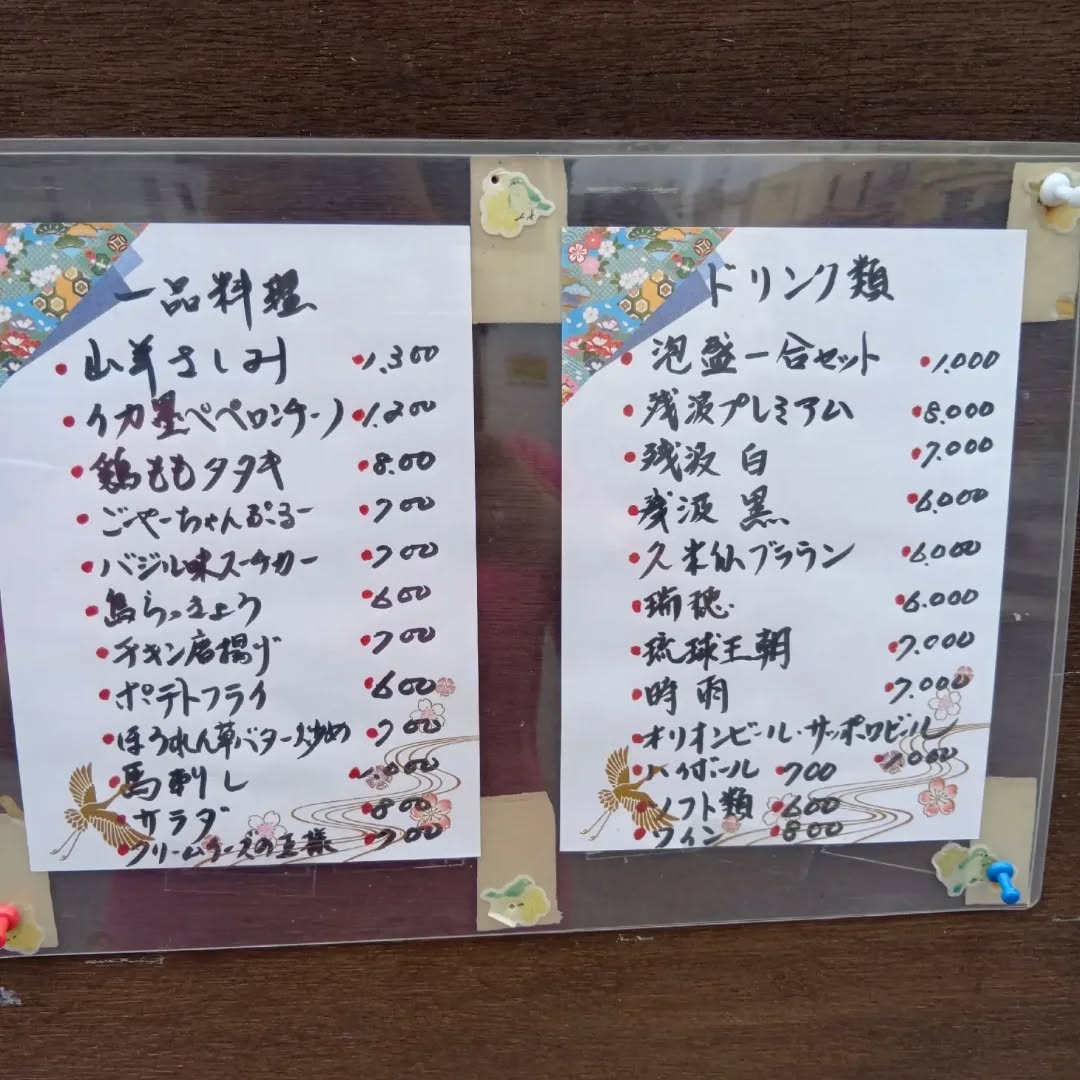 一品料理
・山羊さしみ ・1.300
・イカ墨ペペロンチーノ ・1.200
・鶏ももタタキ ・8.00
・ごーやーちゃんぷるー ・700
・バジル味スーチカー ・700
・島らっきょう ・600
・チキン唐揚げ ・700
・ポテトフライ ・600
・ほうれん草バター炒め ・700
・馬刺し ・1.000
・サラダ ・800
・クリームチーズの王様 ・700
ドリンク類
・泡盛一合セット ・1.000
・残波プレミアム ・8.000
・残波 白 ・7.000
・残波 黒 ・6.000
・久米仙ブラウン ・6.000
・瑞穂 ・6.000
・琉球王朝 ・7.000
・時雨 ・7.000
・オリオンビール・サッポロビール
・1.000
・ハイボール ・700
・ソフト類 ・600
・ワイン ・800